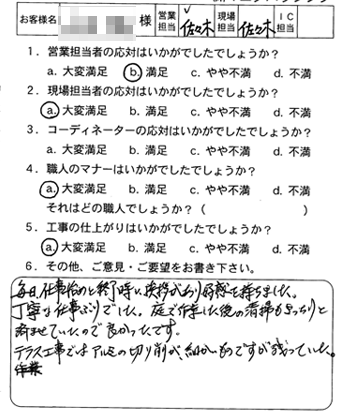 お客様名 様 営業担当 佐々木 現場担当 佐々木 ＩＣ担当
１．営業担当者の応対はいかがでしたでしょうか？
a. 大変満足 b. 満足 c. やや不満 d. 不満
２．現場担当者の応対はいかがでしたでしょうか？
a. 大変満足 b. 満足 c. やや不満 d. 不満
３．コーディネーターの応対はいかがでしたでしょうか？
a. 大変満足 b. 満足 c. やや不満 d. 不満
４．職人のマナーはいかがでしたでしょうか？
a. 大変満足 b. 満足 c. やや不満 d. 不満
それはどの職人でしょうか？（ ）
５．工事の仕上がりはいかがでしたでしょうか？
a. 大変満足 b. 満足 c. やや不満 d. 不満
６．その他、ご意見・ご要望をお書き下さい。
毎日、仕事始めと終了時に挨拶があり好感を持ちました。
丁寧な仕事ぶりでした。庭で作業した後の清掃もきっちりと
されていたので良かったです。
テラス工事ではアルミの切り削が細かいものですが残っていた。
作業